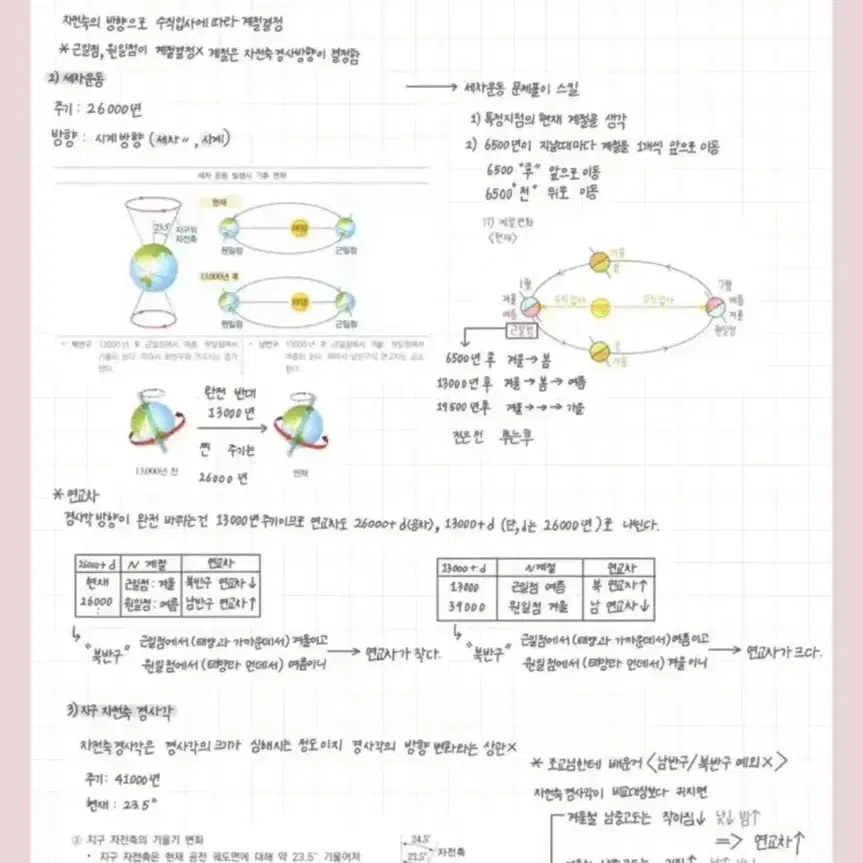 자전축의 방향으로 수직입사에 따라 계절결정
* 근일점, 원일점이 계절결정X 계절은 자전축경사방향이 결정함
2) 세차운동
주기 : 26000년
방향 : 시계방향 (세차〃, 시계)
세차 운동 발생시 기후 변화
23.5°
지구의
자전축
현재
태양
원일점
근일점
13,000년 후
태양
원일점
근일점
13,000년 전
완전 반대
13000년
찐 주기는
26000년
현재
→ 세차운동 문제풀이 스킬
1) 특정지점의 현재 계절을 생각
2) 6500년이 지날때마다 계절을 1개씩 앞으로 이동
6500 "후" 앞으로 이동
6500 "전" 뒤로 이동
계절변화
<현재>
가을
봄
1월
겨울
여름
근일점
수직입사
수직입사
7월
여름
겨울
원일점
봄
가을
6500년 후 겨울 → 봄
13000년 후 겨울 → 봄 → 여름
19500년후 겨울 → → → 가을
전은전 후는후
* 연교차
경사각방향이 완전 바뀌는건 13000년주기이므로 연교차도 26000+d(공차), 13000+d (단, d는 26000년)로 나뉜다.
26000+d N계절 연교차
현재 근일점 : 겨울 북반구 연교차↓
26000 원일점 : 여름 남반구 연교차↑
"북반구" 근일점에서 (태양과 가까운데서) 겨울이고
원일점에서 (태양과 먼데서) 여름이니 → 연교차가 작다.
13000+d N계절 연교차
13000 근일점 여름 북 연교차↑
39000 원일점 겨울 남 연교차↓
"북반구" 근일점에서 (태양과 가까운데서) 여름이고
원일점에서 (태양과 먼데서) 겨울이니 → 연교차가 크다.
3) 지구 자전축 경사각
자전축경사각은 경사각의 크기가 심해지는 정도이지 경사각의 방향 변화와는 상관X
주기 : 41000년
현재 : 23.5°
* 조교님한테 배운거 <남반구/북반구 예외X>
자전축경사각이 비교대상보다 커지면
겨울철 남중고도는 작아짐↓ 낮↓ 밤↑
⇒ 연교차↑
② 지구 자전축의 기울기 변화
• 지구 자전축은 현재 공전 궤도면에 대해 약 23.5° 기울어져
24.5°
23.5°
자전축